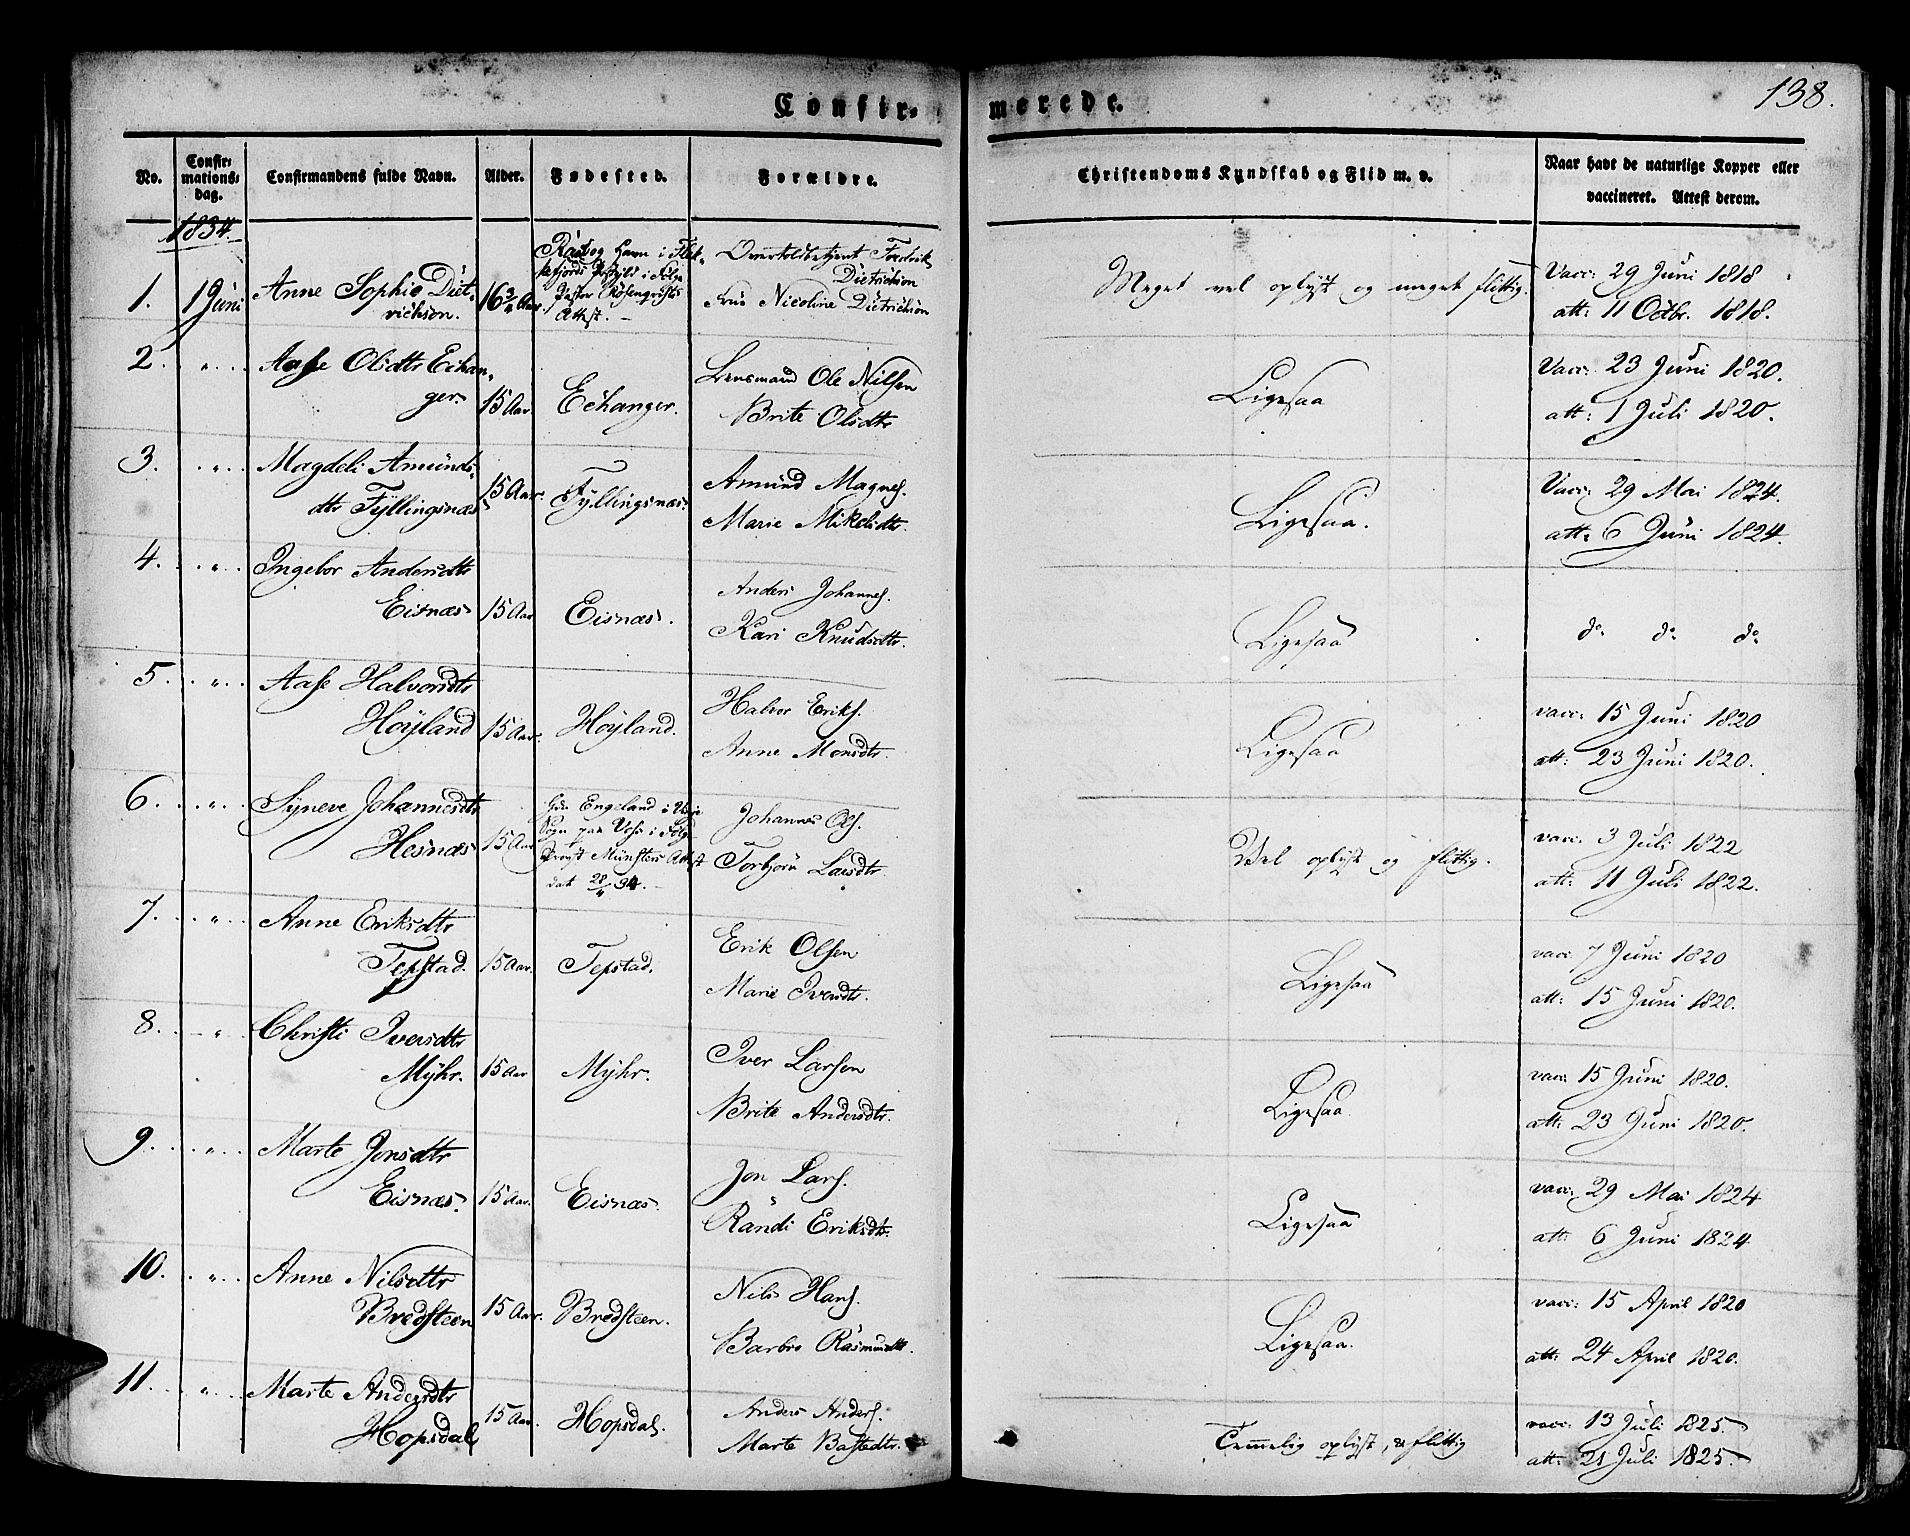 138.
Confir- merede.
No.
Confirmations-dag.
Confirmandens fulde Navn.
Alder.
Fødested.
Forældre.
Christendoms Kyndskab og Flid m. v.
Naar havt de naturlige Kopper eller
vaccineret. Attest derom.
1834.
1. 1 Juni Anne Sophie Diet-
richson. 16 3/4 Aar.
Havn i Flek-
kefjords i Følge
Pastor Rosenqvists
Attest.
Overtoldbetjent Fredrik
Dietrichson
Frue Nicoline Dietrichson
Meget vel oplyst og meget flittig.
Vacc: 29 Juni 1818
att: 11 Octbr. 1818.
2. " Aase Olsdtr Echan-
ger. 15 Aar. Echanger.
Lensmand Ole Nilsen
Brite Olsdtr
Ligesaa
Vacc: 23 Juni 1820.
att: 1 Juli 1820.
3. " Magdeli Amunds-
dtr Fyllingsnæs 15 Aar. Fyllingsnæs.
Amund Magnes.
Marie Mikelsdtr.
Ligesaa.
Vacc: 29 Mai 1824.
att: 6 Juni 1824.
4. " Ingebor Andersdtr
Eisnæs 15 Aar Eisnæs.
Anders Johannes.
Kari Knudsdtr.
Ligesaa
do do do
5. " Aase Halvorsdtr
Höyland 15 Aar. Höyland.
Halvor Eriks.
Anne Monsdtr.
Ligesaa
vacc: 15 Juni 1820
att: 23 Juni 1820.
6. " Syneve Johannesdtr
Hesnæs 15 Aar
Gdr Engeland i
Sogn paa Voss i Følge
Provst Münsters Attest
dat 28/4 34.
Johannes Ols.
Torbjörn Larsdtr
Vel oplyst og flittig.
vacc: 3 Juli 1822
att: 11 Juli 1822.
7. " Anne Eriksdtr
Tepstad. 15 Aar. Tepstad.
Erik Olsen
Marie Iversdtr.
Ligesaa
vacc: 7 Juni 1820
att: 15 Juni 1820.
8. " Christi Iversdtr
Myhr. 15 Aar Myhr.
Iver Larsen
Brite Andersdtr.
Ligesaa.
vacc: 15 Juni 1820.
att: 23 Juni 1820.
9. " Marte Jonsdtr
Eisnæs. 15 Aar. Eisnæs.
Jon Lars.
Randi Eriksdtr.
Ligesaa
vacc: 29 Mai 1824
att: 6 Juni 1824
10. " Anne Nilsdtr
Bredsteen 15 Aar. Bredsteen.
Nils Hans.
Barbro Rasmusdtr.
Ligesaa.
vacc: 15 April 1820
att: 24 April 1820.
11. " Marte Andersdtr
Hopsdal 15 Aar. Hopsdal.
Anders Anders.
Marte Bastedtr.
Temmelig oplyst, & flittig
vacc: 13 Juli 1825.
att: 21 Juli 1825.